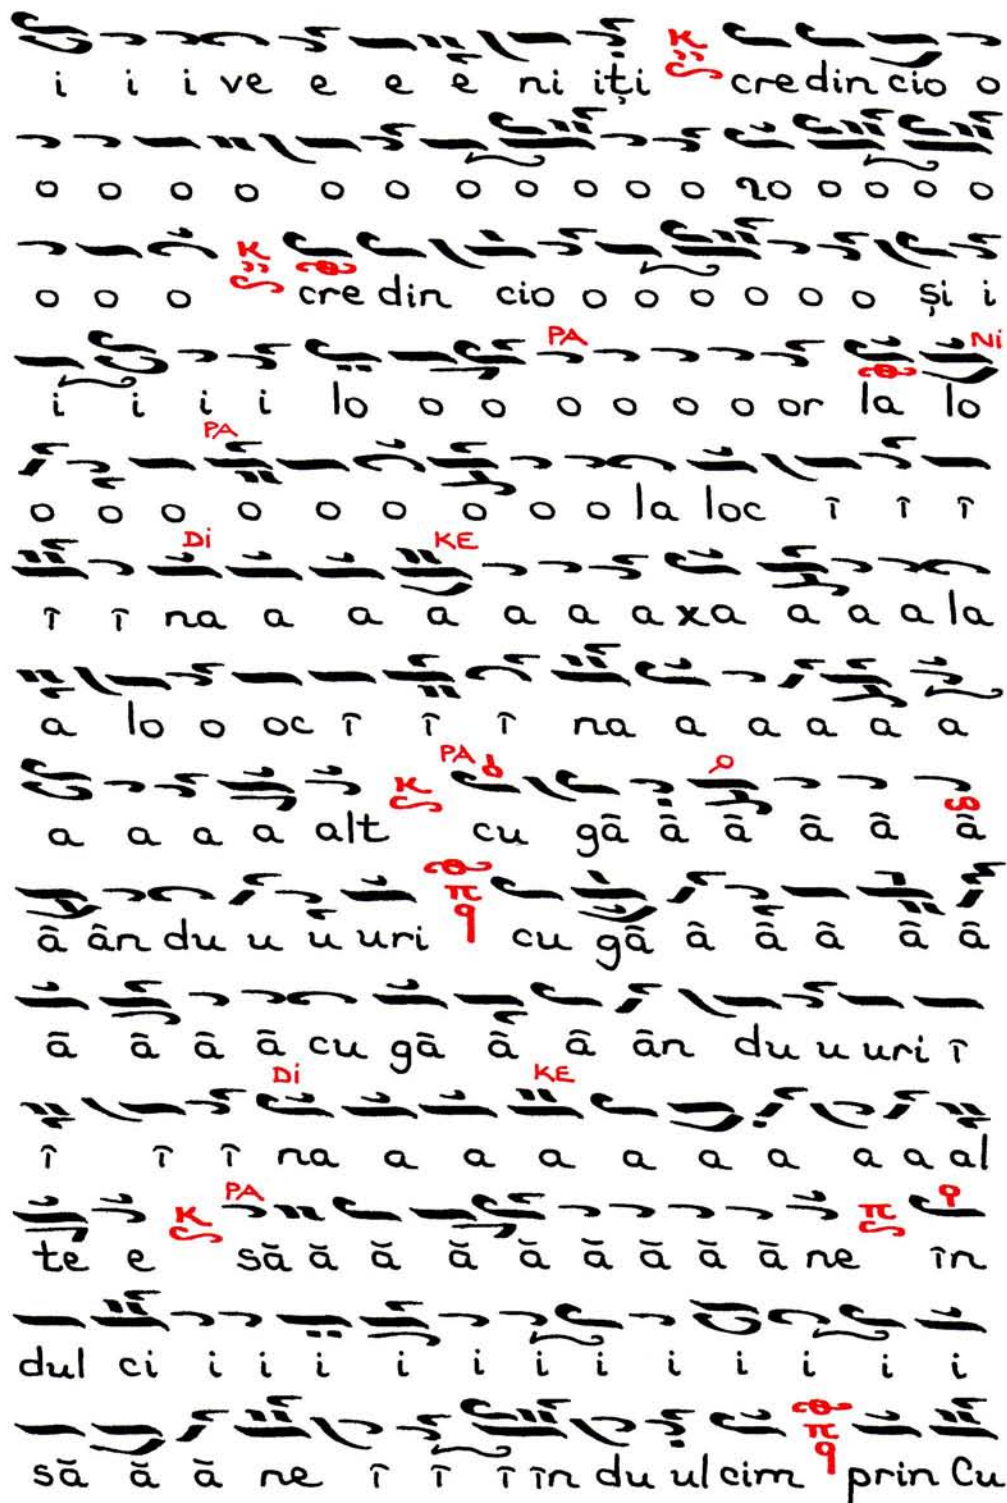 K
i i i ve e e e ni iți credin cio o
o o o o o o o o o o o ro o o o o
K
o o o cre din cio o o o o o o și i
PA Ni
i i i i lo o o o o o o or la lo
PA
o o o o o o o o o la loc î î î
Di KE
î î na a a a a a a xa a a a la
a lo o oc î î î na a a a a a
PA K
a a a a alt cu gâ â â â â â
π q
â ân du u u uri cu gâ â â â â â
â â â â cu gâ â â ân du u uri î
Di KE
î î î na a a a a a a a a al
PA K π
te e să ă ă ă ă ă ă ă ă ne în
dul ci i i i i i i i i i i i i
π q
să ă ă ne î î î în du ul cim prin Cu